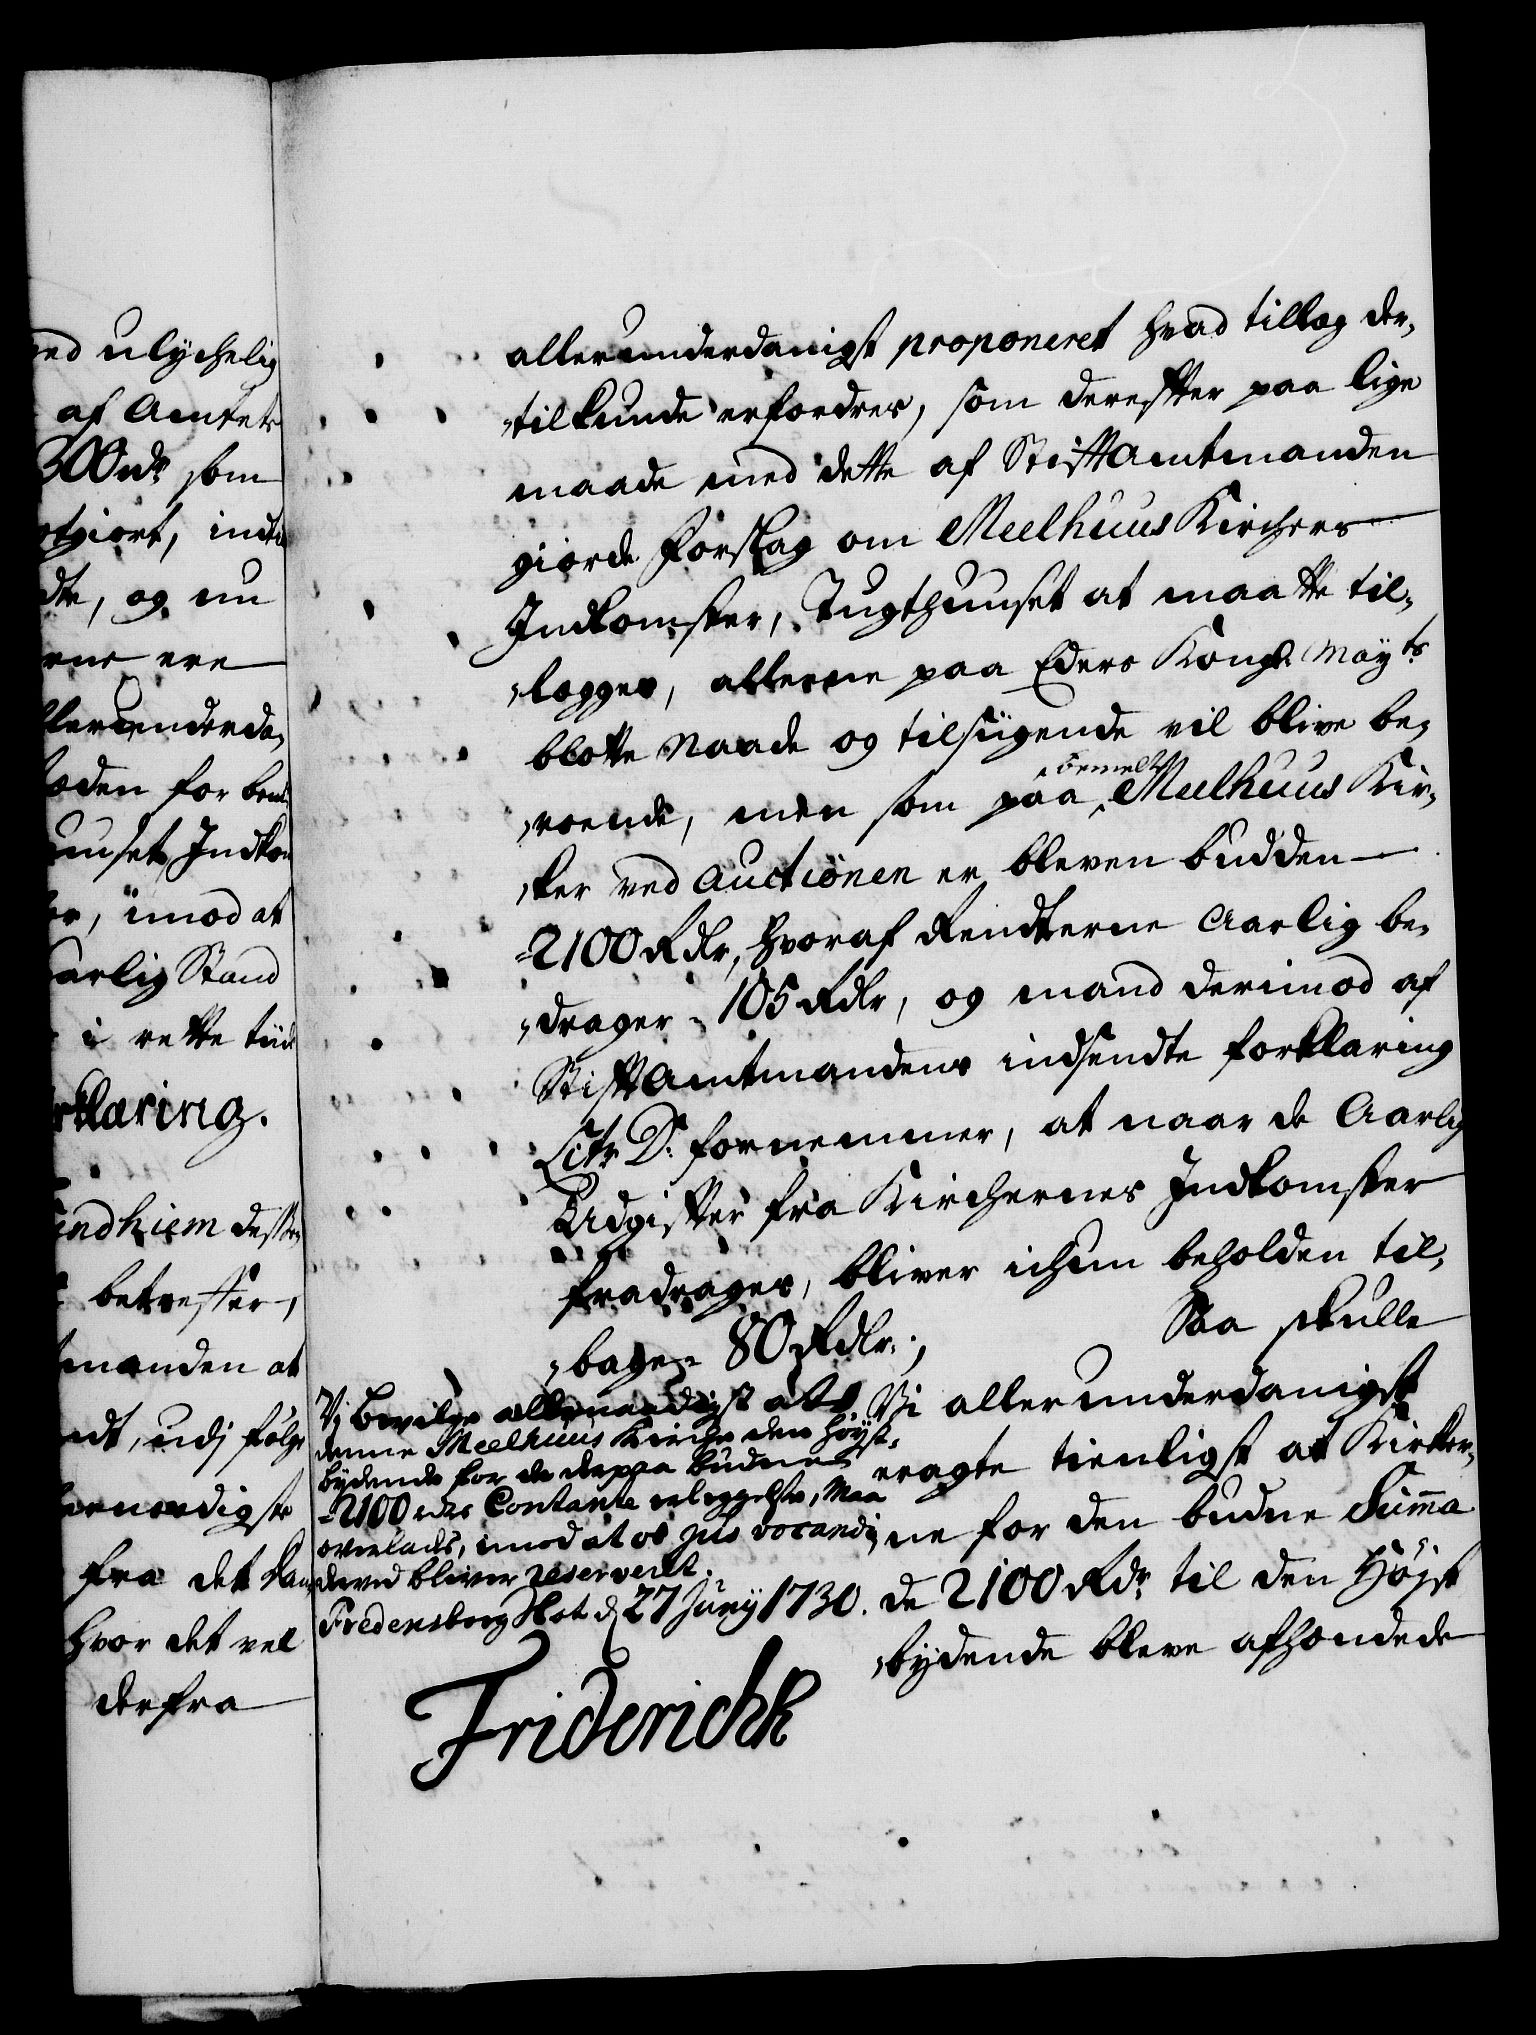 ulÿchelig
af Amtets
300 rdr som
giort, ind
dte, og nu
rne ere
allerunderda,
for bem
huuset Indkom
, imod at
aarlig Stand
i rette tiid
rklaring.
indhiem
betreffer,
manden at
dt, udj følge
ernaadigste
fra det kand
hvor det vel
derfra
allerunderdanigst proponeret hvad tillæg der,
,til kunde erfordres, som derefter paa lige
maade med dette af Stiftamtmanden
giorde forslag om Meelhuus Kirchers
Indkomster, Tugthuuset at maatte til,
,lægges, alleene paa Eders Kongl. Mayts
blotte Naade og tilsiigende vil blive be,
,roende, men som paa bemelte Meelhuus Kir,
,ker ved Auctionen er bleven budden
2100 Rdlr, hvoraf Rendterne Aarlig be,
,drager 105 Rdlr, og mand derimod af
Stiftamtmandens indsendte forklaring
Litr D. fornemmer, at naar de Aarlig
Udgifter fra Kirchernes Indkomster
fradrages, bliver ichun beholden til,
,bage 80 Rdlr.,
Saa skulle
Vi allerunderdanigst
eragte tienligst at Kirker,
,ne for den budne Summa
de 2100 Rdr til den Høist
,bÿdende bleve afhændede
Vj bevilge allernaadigst at
denne Meelhuus Kirche den høÿst,
bÿdende for de derpaa budne
2100 rdrs Contante erleggelse, maa
overlades, imod at os jus vocandi
derved bliver reserveret.
Fredensborg Slot d. 27 Junÿ 1730.
Friderich R